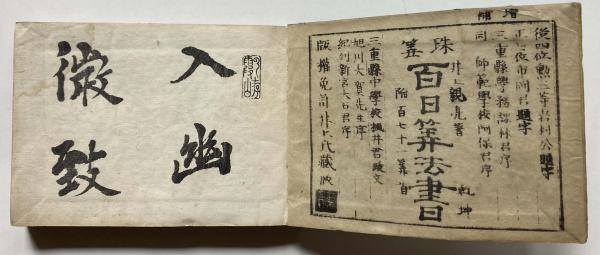 増補
後四位勲三等岩村公題字
正七位市岡君題字
三重縣學務課林君序
同 師範學校阿保君序
井上親亮著 乾坤
珠算 百日算法書
附百七十一算自
三重縣中學校横井君跋文
旭川大賀先生序
紀州新宮大石君序
版權免許井上氏藏版
入幽
微致